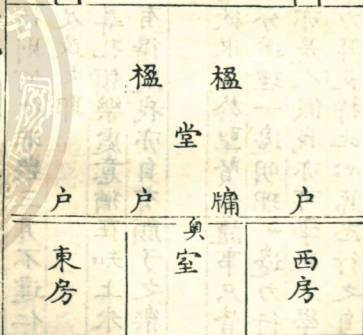 楹 楹
堂
户 户 牖 户
奥
東房 室 西房